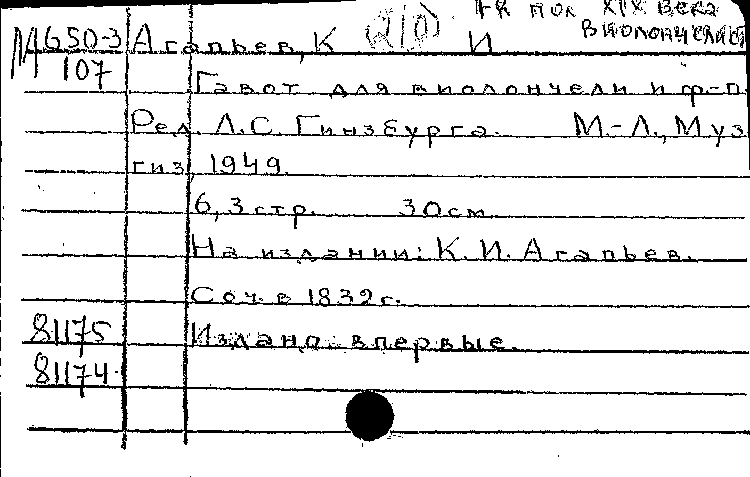 1я пол XIX века
виолончелист
М 650-3 Агапьев, К И
107
Гавот для виолончели и ф-п.
Ред. Л.С. Гинзбурга. М.-Л., Муз
гиз, 1949.
6, 3 стр. 30 см.
На издании: К. И. Агапьев.
Соч. в 1832 г.
81175 Издано впервые.
81174